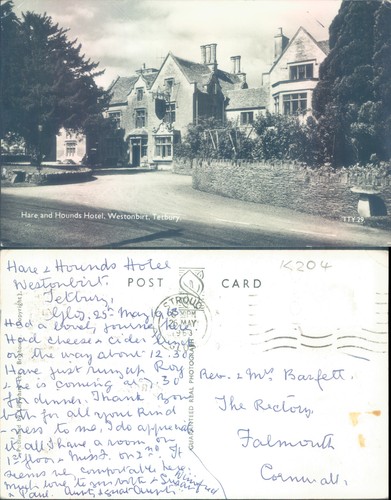 Hare and Hounds Hotel, Westonbirt, Tetbury.
TTY.29
K204
POST CARD
Hare & Hounds Hotel
Westonbirt.
Tetbury,
Glos. 25th May, 1963
Had a lovely journey here
Had cheese & cider lunch
on the way about 12.30
Have just rung up Roy
& he is coming at 7.30
for dinner. Thank you
both for all your kind
-ness to me, I do appreciate
it all. I have a room on
1st floor & Miss J. on 2nd. It
seems v. comfortable here.
Much love to you both &
Paul.
STROUD
MAY
1963
GUARANTEED REAL PHOTOGRAPH
Rev. & Mrs. Barfett.
The Rectory,
Falmouth
Cornwall.